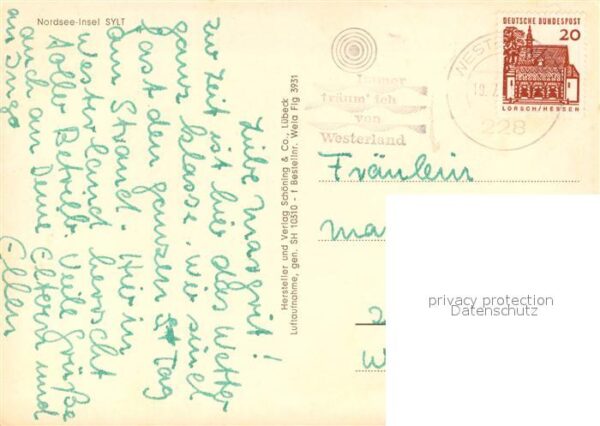 Nordsee-Insel SYLT
Liebe Margrit!
zur Zeit ist hier das Wetter
ganz klasse, wir sind
fast den ganzen Tag
am Strand. Hier in
Westerland herrscht
toller Betrieb. Viele Grüße
auch an Deine Eltern und
an Inge
Ellen
Hersteller und Verlag Schöning & Co., Lübeck
Luftaufnahme, gen. SH 10310 - 1 Bestellnr. Wela Flg 3931
Immer
träum' ich
von
Westerland
DEUTSCHE BUNDESPOST
20
LORSCH/HESSEN
WESTE
228
Fräulein
Ma
2
W
privacy protection
Datenschutz